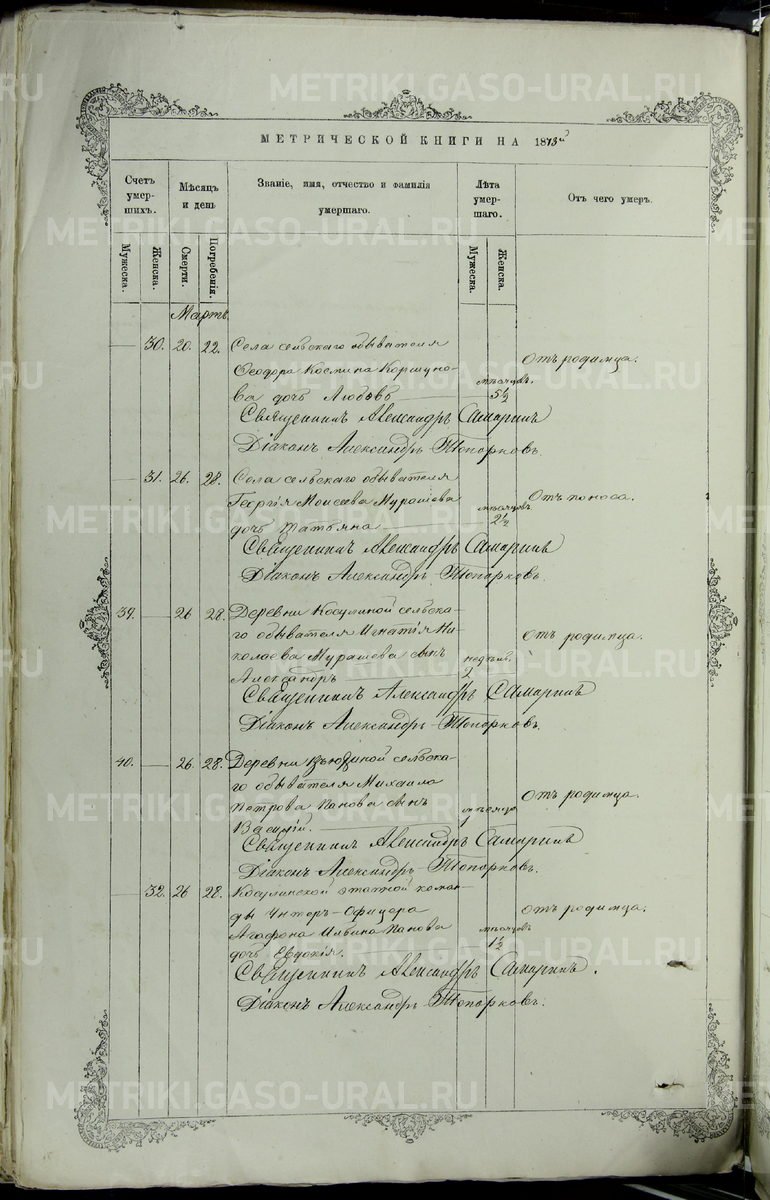 МЕТРИЧЕСКОЙ КНИГИ НА 1873й
Счетъ умер-шихъ.
Мѣсяцъ и день
Званіе, имя, отчество и фамилія умершаго.
Лѣта умер-шаго.
Отъ чего умеръ.
Мужеска.
Женска.
Смерти.
Погребенія.
Мужеска.
Женска.
Мартъ.
— 30. 20. 22. Села сельскаго обывателя
Ѳеодора Космина Коршуно-
ва дочь Любовь — мѣсяцев. 5½ Отъ родимца.
Священникъ Александръ Самаринъ
Діаконъ Александръ Топорковъ.
— 31. 26. 28. Села сельскаго обывателя
Георгія Моисеева Мурашева
дочь Татьяна — мѣсяцевъ 2½ Отъ поноса.
Священникъ Александръ Самаринъ
Діаконъ Александръ Топорковъ.
39. — 26 28. Деревни Косулиной сельска-
го обывателя Игнатія Ни-
колаева Мурашева сынъ
Александръ — недѣль. 2 Отъ родимца.
Священникъ Александръ Самаринъ
Діаконъ Александръ Топорковъ.
40. — 26. 28. Деревни сельска-
го обывателя Михаила
Петрова Панова сынъ
Василій. — мѣсяца Отъ родимца.
Священникъ Александръ Самаринъ
Діаконъ Александръ Топорковъ.
— 32. 26 28. Косулинской этапной коман-
ды Унтеръ-Офицера
Агафона Ильина Панова
дочь Евдокія. мѣсяцевъ 1½ Отъ родимца.
Священникъ Александръ Самаринъ.
Діаконъ Александръ Топорковъ.
METRIKI.GASO-URAL.RU